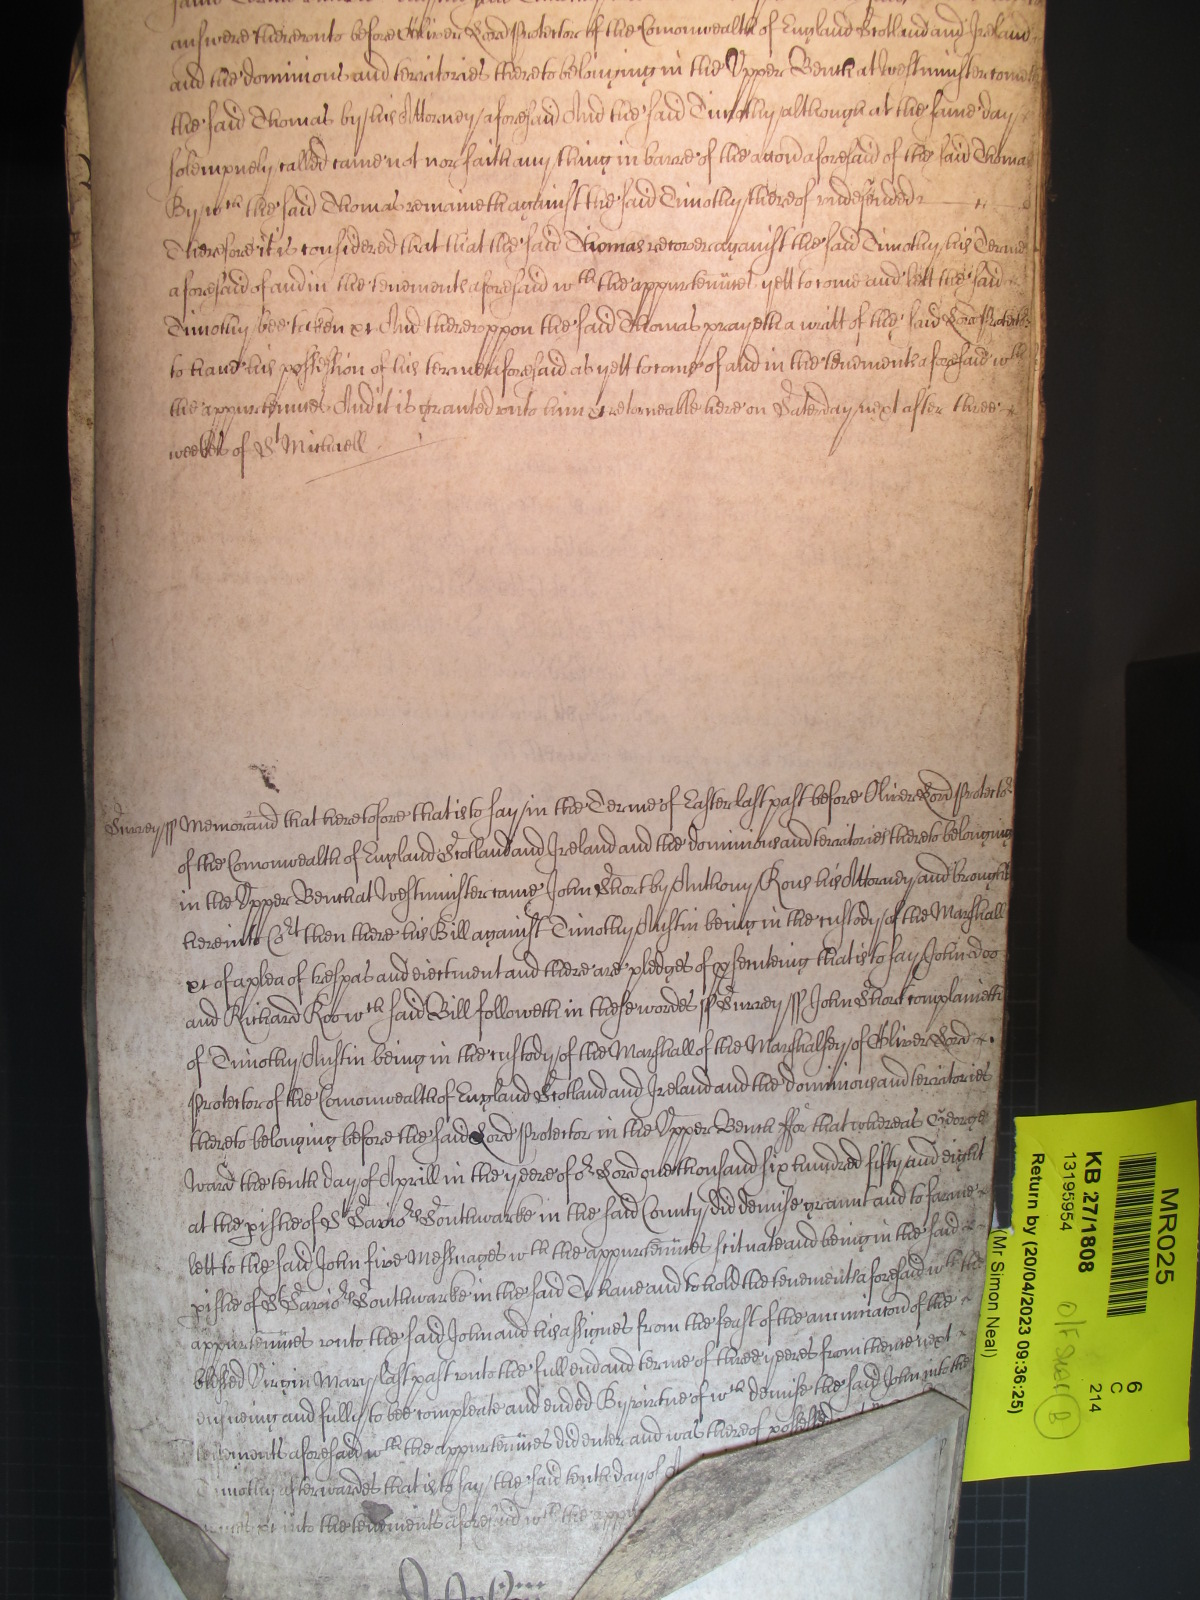 answere therevnto before Oliver Lord Protector of the Comonwealth of England Scotland and Ireland
and the dominions and territories thereto belonging in the Vpper Bench at Westminster cometh
the said Thomas by his Attorney aforesaid And the said Timothy although at the same day
solempnely called came not nor saith any thing in barre of the accon aforesaid of the said Thomas
By wch the said Thomas remaineth against the said Timothy thereof vndefended
Therefore it is considered that that the said Thomas recover against the said Timothy his Terme
aforesaid of and in the tenements aforesaid wth the appurtenncs yett to come and lett the said
Timothy bee taken &c And therevppon the said Thomas prayeth a writt of the said Lord Protector
to have his possession of his terme aforesaid as yett to come of and in the tenements aforesaid wth
the appurtennces And it is graunted vnto him &c retorneable here on Saterday next after three
weekes of St Michaell
Surrey ss Memorand that heretofore that is to say in the Terme of Easter last past before Oliver Lord Protector
of the Comonwealth of England Scotland and Ireland and the dominions and territories thereto belonging
in the Vpper Bench at Westminster came John Short by Anthony Rous his Attorney and brought
here into Cort then there his Bill against Timothy Austin being in the custody of the Marshall
&c of a plea of trespas and eiectment and there are pledges of psecuteing that is to say John Doo
and Richard Roo wch said Bill followeth in these wordes ss Surrey ss John Short complaineth
of Timothy Austin being in the custody of the Marshall of the Marshalsey of Oliver Lord
Protector of the Comonwealth of England Scotland and Ireland and the dominions and territories
thereto belonging before the said Lord Protector in the Vpper Bench ffor that whereas George
Ward the tenth day of Aprill in the yeere of or Lord one thousand six hundred fifty and eight
at the pishe of St Savior Southwarke in the said County did demise graunt and to farme
lett to the said John five Messuages wth the appurtennces scituate and being in the said
pishe of St Savior Southwarke in the said To have and to hold the tenements aforesaid wth the
appurtennces vnto the said John and his assignes from the feast of the annunciacon of the
blessed Virgin Mary last past vnto the full end and terme of three yeeres from thence next
ensueing and fully to bee compleate and ended By virtue of wch demise the said John into the
tenements aforesaid wth the appurtennces did enter and was thereof possessed
Timothy afterwardes that is to say the said tenth day of A
&c into the tenements aforesaid wth the appur
MR025
KB 27/1808
13195954
6
C
214
Return by (20/04/2023 09:36:25)
(Mr Simon Neal)